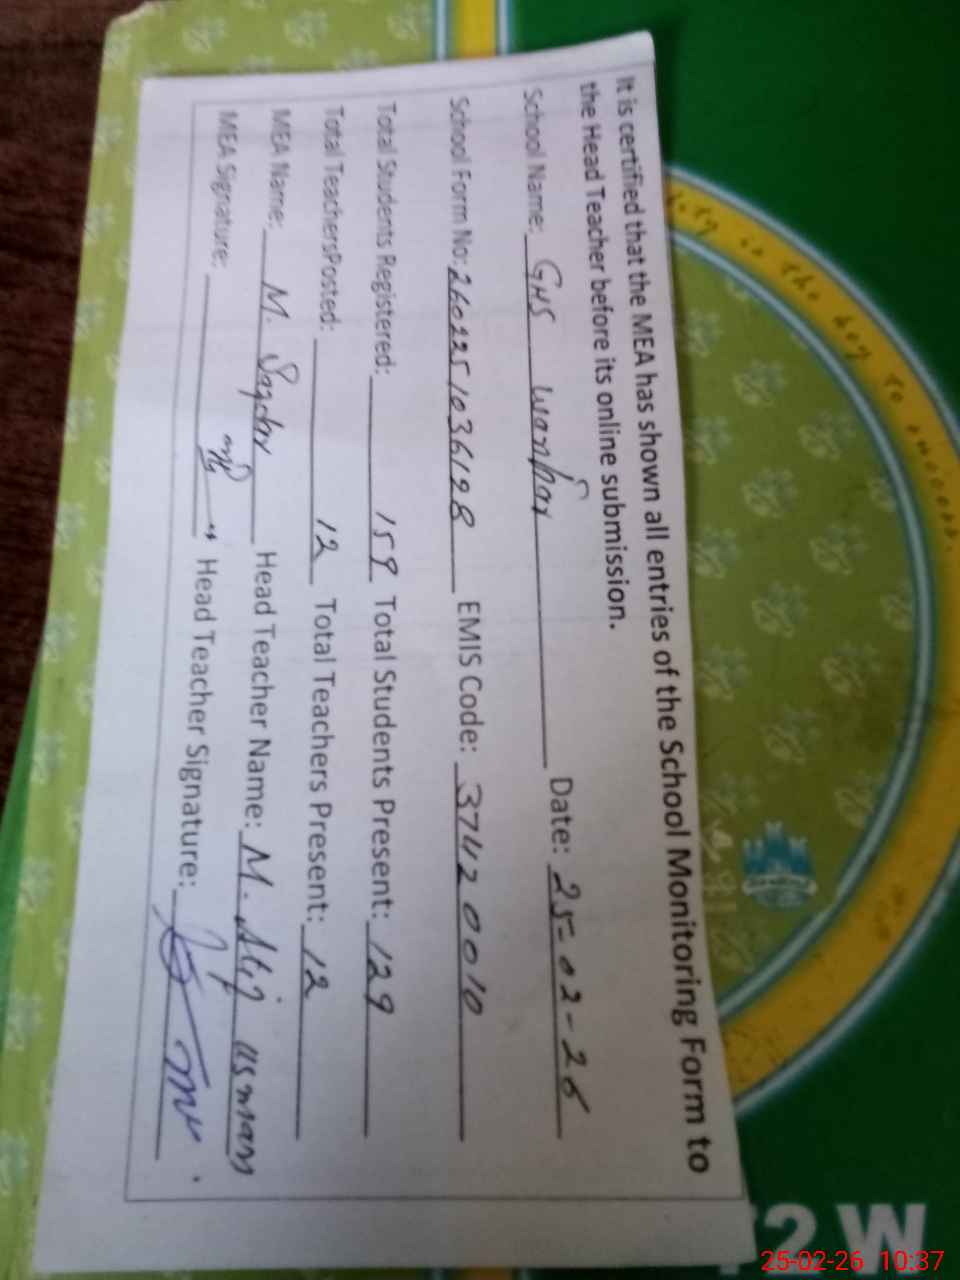 It is certified that the MEA has shown all entries of the School Monitoring Form to
the Head Teacher before its online submission.
School Name: GHS Wanhar Date: 25-02-26
School Form No: 2602251036198 EMIS Code: 37420010
Total Students Registered: 159 Total Students Present: 129
Total TeachersPosted: 12 Total Teachers Present: 12
MEA Name: M. Head Teacher Name: M. Atiq usman
MEA Signature: Head Teacher Signature:
is the key to success.
2 W
25-02-26 10:37